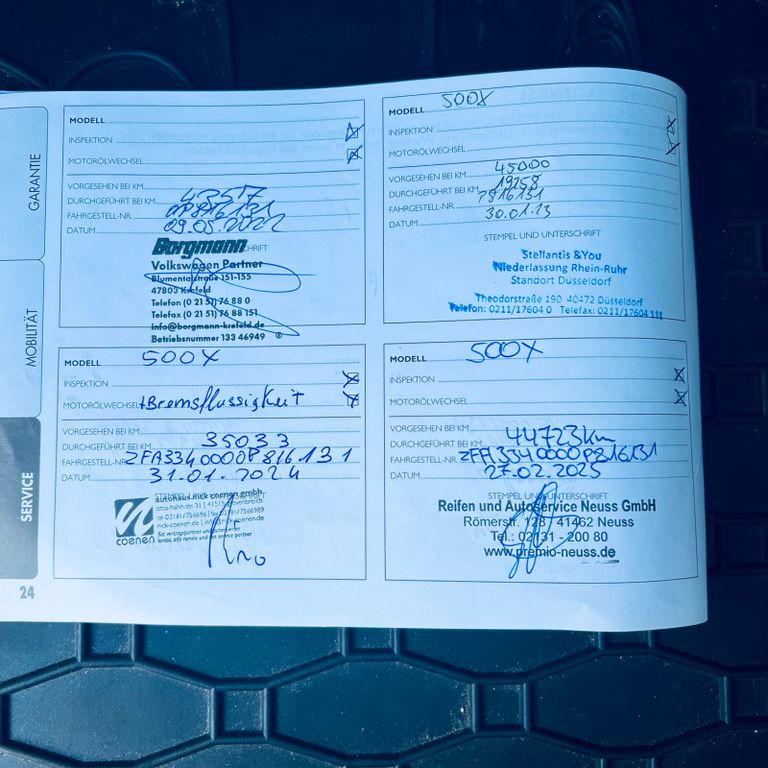 GARANTIE
MOBILITÄT
SERVICE
24
MODELL
INSPEKTION
MOTORÖLWECHSEL
VORGESEHEN BEI KM
DURCHGEFÜHRT BEI KM
FAHRGESTELL-NR.
DATUM 09.05.2022
Borgmann
Volkswagen Partner
Blumentalstraße 151-155
47803 Krefeld
Telefon (0 21 51) 76 88 0
Telefax (0 21 51) 76 88 151
info@borgmann-krefeld.de
Betriebsnummer 133 46949
MODELL 500X
INSPEKTION
MOTORÖLWECHSEL
VORGESEHEN BEI KM 45000
DURCHGEFÜHRT BEI KM
FAHRGESTELL-NR. P816131
DATUM 30.01.23
STEMPEL UND UNTERSCHRIFT
Stellantis &You
Niederlassung Rhein-Ruhr
Standort Düsseldorf
Theodorstraße 190 40472 Düsseldorf
Telefon: 0211/17604 0 Telefax: 0211/17604 111
MODELL 500X
INSPEKTION
MOTORÖLWECHSEL +Bremsflüssigkeit
VORGESEHEN BEI KM
DURCHGEFÜHRT BEI KM 35033
FAHRGESTELL-NR. ZFA3340000P816131
DATUM 31.01.2024
autohaus nick coenen gmbh
coenen
MODELL 500X
INSPEKTION
MOTORÖLWECHSEL
VORGESEHEN BEI KM
DURCHGEFÜHRT BEI KM 44723km
FAHRGESTELL-NR. ZFA3340000P816131
DATUM 27.02.2025
STEMPEL UND UNTERSCHRIFT
Reifen und Autoservice Neuss GmbH
Römerstr. 128 41462 Neuss
Tel.: 02131 - 200 80
www.premio-neuss.de